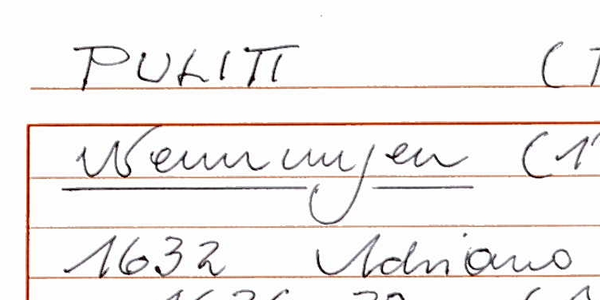 PULITI (
Wenningen (1
1632 Adriano